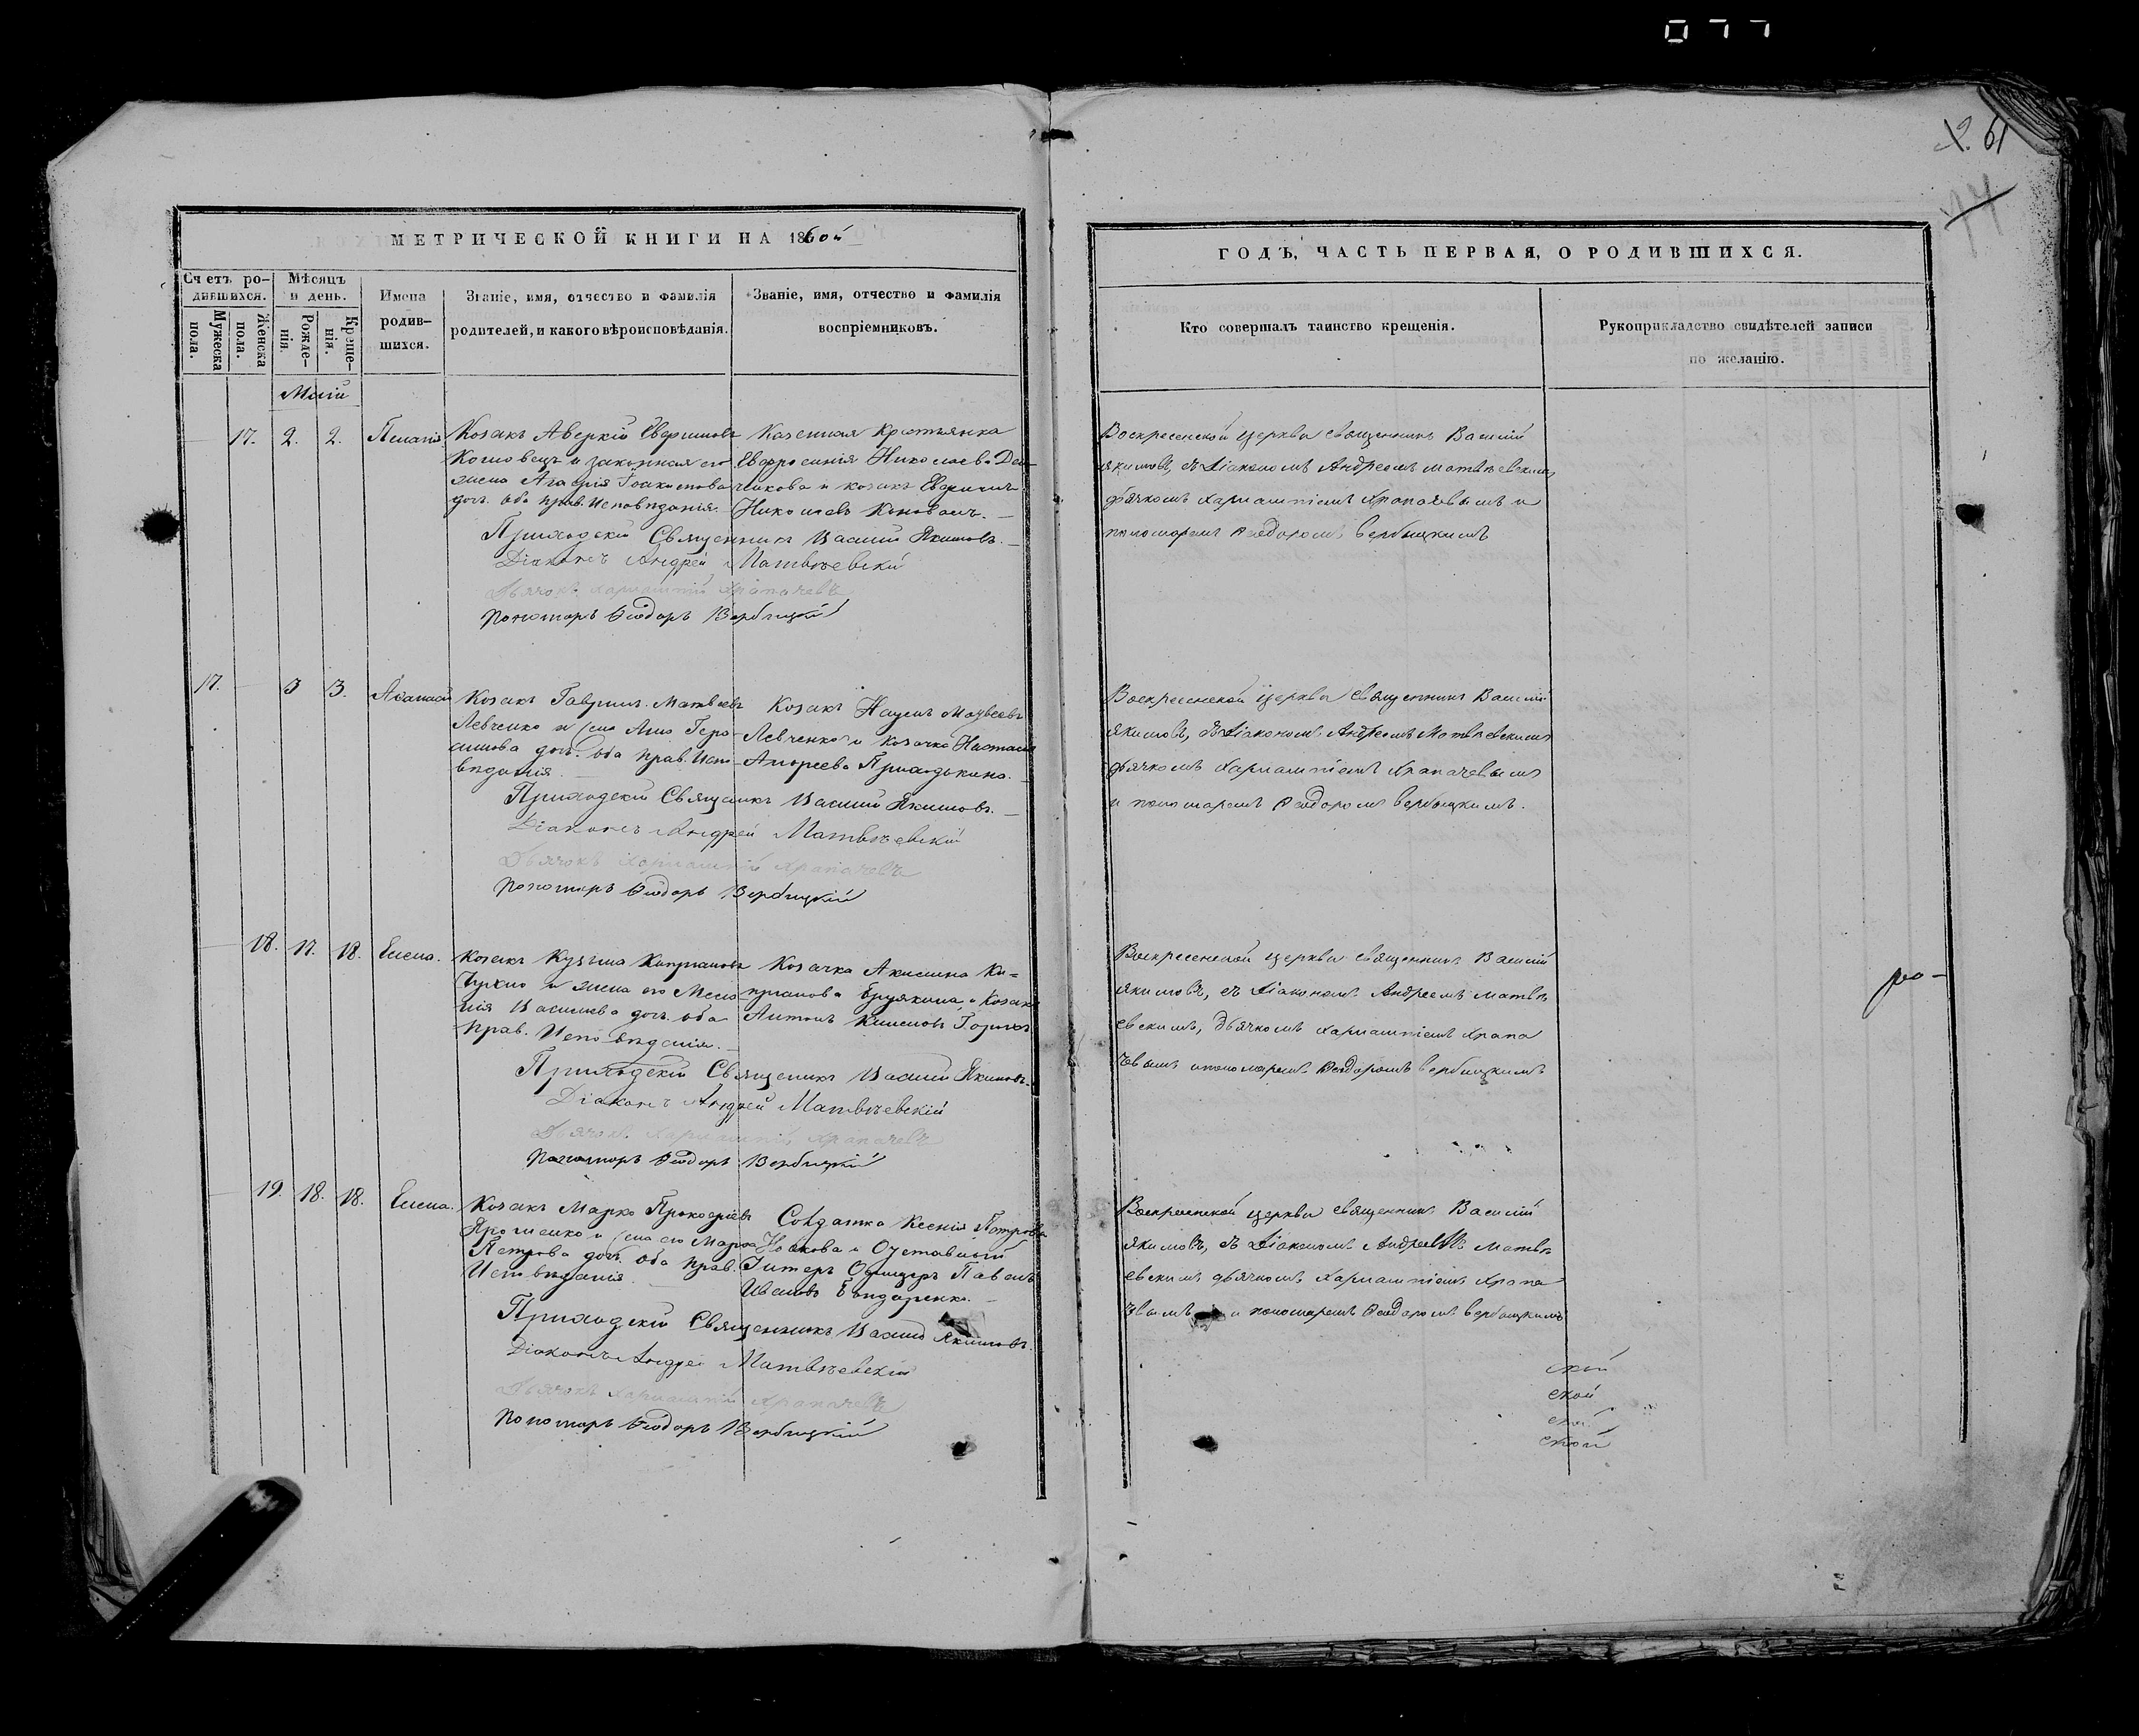 077
61
77
МЕТРИЧЕСКОЙ КНИГИ НА 1860й
Счетъ ро-
дившихся.
Мужеска
пола.
Женска
пола.
Мѣсяцъ
и день.
Рожде-
нія.
Креще-
нія.
Имена
родив-
шихся.
Званіе, имя, отчество и фамилія
родителей, и какого вѣроисповѣданія.
Званіе, имя, отчество и фамилія
воспріемниковъ.
Маій
17. 2. 2. Пелагія
Козакъ Аверкій
и законная его
жена Агафія Іоакимова
доч. оба прав. Исповѣданія.
Казенная Крестьянка
Евфросинія Николаева
и козакъ
Николаевъ Коновалъ.
Приходскій Священникъ Василій Якимовъ.
Діаконъ Андрей Матвѣевскій
Дьячокъ Харлампій Храпачевъ
Пономарь Ѳеодоръ Вербицкій
17. 3 3. Аѳанасій
Козакъ Гавріилъ Матвѣевъ
Левченко и жена Анна Гера-
симова доч. оба прав. Испо-
вѣданія.
Козакъ Наумъ Матвѣевъ
Левченко и козачка Настасія
Андреева Приходькина.
Приходскій Священикъ Василій Якимовъ.
Діаконъ Андрей Матвѣевскій
Дьячокъ Харлампій Храпачевъ
Пономарь Ѳеодоръ Вербицкій
18. 17. 18. Елена.
Козакъ Кузьма Кипріановъ
и жена его Мела-
нія Василіева доч. оба
прав. Исповѣданія.
Козачка Акилина Ки-
пріанова и Козакъ
Антонъ Климовъ
Приходскій Священикъ Василій Якимовъ.
Діаконъ Андрей Матвѣевскій
Дьячокъ Харлампій Храпачевъ
Пономарь Ѳеодоръ Вербицкій
19. 18. 18. Елена.
Козакъ Марко Прокофіевъ
Ярошенко и жена его Марфа
Петрова доч. оба прав.
Исповѣданія
Солдатка Ксенія Петрова
Носкова и Отставный
Унтеръ Офицеръ Павелъ
Ивановъ Бондаренко.
Приходскій Священникъ Василій Якимовъ.
Діаконъ Андрей Матвѣевскій
Дьячокъ Харлампій Храпачевъ
Пономарь Ѳеодоръ Вербицкій
ГОДЪ, ЧАСТЬ ПЕРВАЯ, О РОДИВШИХСЯ.
Кто совершалъ таинство крещенія.
Рукоприкладство свидѣтелей записи
по желанію.
Воскресенской церкви священникъ Василій
Якимовъ, съ Діакономъ Андреемъ Матвѣевскимъ,
дьячкомъ Харлампіемъ Храпачевымъ и
пономаремъ Ѳеодоромъ Вербицкимъ
Воскресенской церкви священникъ Василій
Якимовъ, съ Діакономъ Андреемъ Матвѣевскимъ
дьячкомъ Харлампіемъ Храпачевымъ
и пономаремъ Ѳеодоромъ Вербицкимъ.
Воскресенской церкви священникъ Василій
Якимовъ, съ Діакономъ Андреемъ Матвѣ
евскимъ, дьячкомъ Харлампіемъ Храпа
чевымъ и пономаремъ Ѳеодоромъ Вербицкимъ
Воскресенской церкви священникъ Василій
Якимовъ, съ Діакономъ Андреемъ Матвѣ
евскимъ дьячкомъ Харлампіемъ Храпа
чвымъ и пономаремъ Ѳеодоромъ Вербицкимъ
ро-
ской
ской
ской
ской